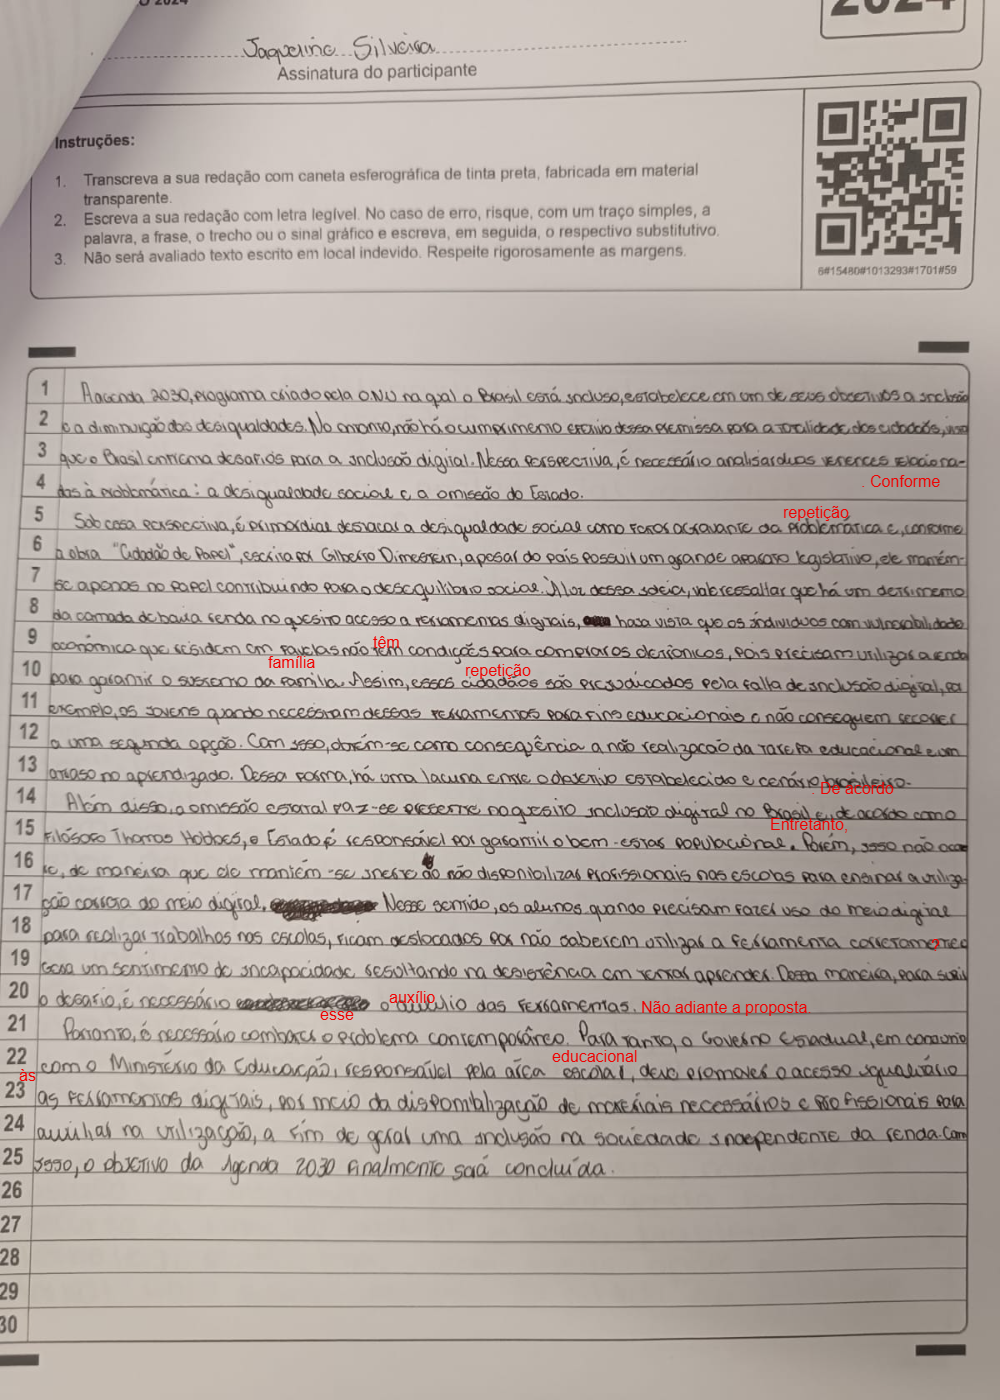 Jaqueline Silveira
Assinatura do participante
Instruções:
1. Transcreva a sua redação com caneta esferográfica de tinta preta, fabricada em material
transparente.
2. Escreva a sua redação com letra legível. No caso de erro, risque, com um traço simples, a
palavra, a frase, o trecho ou o sinal gráfico e escreva, em seguida, o respectivo substitutivo.
3. Não será avaliado texto escrito em local indevido. Respeite rigorosamente as margens.
6#15480#1013293#1701#59
1 A agenda 2030, programa criado pela ONU na qual o Brasil está incluso, estabelece em um de seus objetivos a inclusão
2 e a diminuição das desigualdades. No entanto, não há o cumprimento efetivo dessa premissa para a totalidade dos cidadãos, visto
3 que o Brasil enfrenta desafios para a inclusão digital. Nessa perspectiva, é necessário analisar duas vertentes relaciona-
4 das à problemática: a desigualdade social e a omissão do Estado.
. Conforme
repetição
5 Sob essa perspectiva, é primordial destacar a desigualdade social como fator agravante da problemática e, conforme
6 a obra "Cidadão de Papel", escrita por Gilberto Dimenstein, apesar do país possuir um grande aparato legislativo, ele mantém-
7 se apenas no papel contribuindo para o desequilíbrio social. À luz dessa ideia, vale ressaltar que há um detrimento
8 da camada de baixa renda no quesito acesso a ferramentas digitais, haja vista que os indivíduos com vulnerabilidade
9 econômica que residem em favelas não têm condições para comprar os eletrônicos, pois precisam utilizar a renda
têm
família
repetição
10 para garantir o sustento da família. Assim, esses cidadãos são prejudicados pela falta de inclusão digital, por
11 exemplo, os jovens quando necessitam dessas ferramentas para fins educacionais e não conseguem recorrer
12 a uma segunda opção. Com isso, obtém-se como consequência a não realização da tarefa educacional e um
13 atraso no aprendizado. Dessa forma, há uma lacuna entre o objetivo estabelecido e cenário brasileiro.
De acordo
14 Além disso, a omissão estatal faz-se presente no quesito inclusão digital no Brasil e, de acordo com o
Entretanto,
15 filósofo Thomas Hobbes, o Estado é responsável por garantir o bem-estar populacional. Porém, isso não ocor
16 re, de maneira que ele mantém-se inerte ao não disponibilizar profissionais nas escolas para ensinar a utiliza-
17 ção correta do meio digital. Nesse sentido, os alunos quando precisam fazer uso do meio digital
18 para realizar trabalhos nas escolas, ficam deslocados por não saberem utilizar a ferramenta corretamente e
19 gera um sentimento de incapacidade resultando na desistência em tentar aprender. Dessa maneira, para suprir
20 o desafio, é necessário o auxílio das ferramentas.
auxílio
Não adiante a proposta
esse
21 Portanto, é necessário combater o problema contemporâneo. Para tanto, o Governo Estadual, em conjunto
educacional
22 com o Ministério da Educação, responsável pela área escolar, deve promover o acesso igualitário
às
23 as ferramentas digitais, por meio da disponibilização de materiais necessários e profissionais para
24 auxiliar na utilização, a fim de gerar uma inclusão na sociedade independente da renda. Com
25 isso, o objetivo da Agenda 2030 finalmente será concluída.
26
27
28
29
30